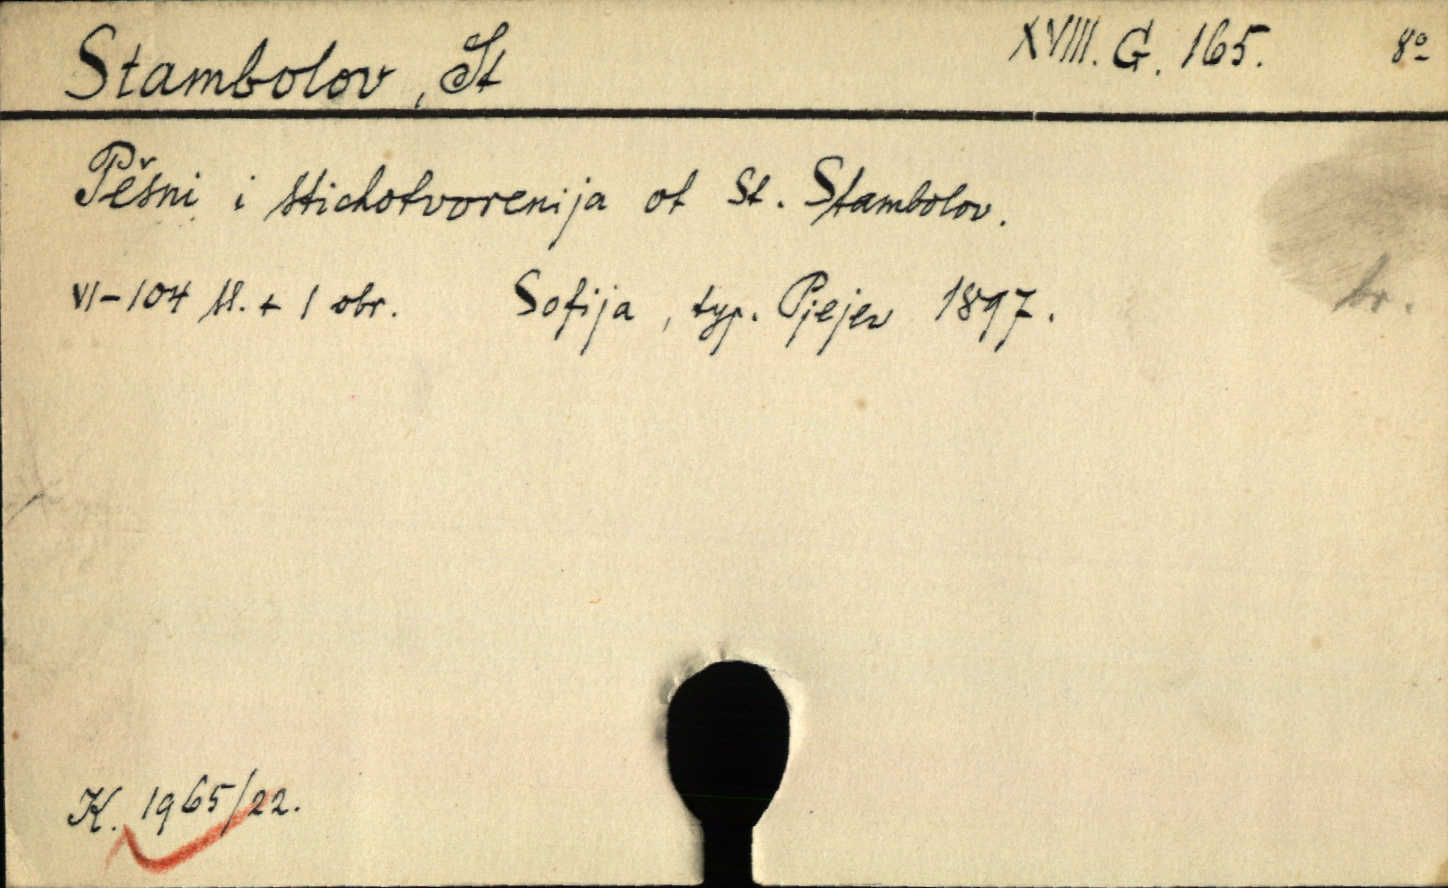 Stambolov, St XVIII. G. 165. 8º
Pěsni i stichotvorenija ot St. Stambolov.
VI-104 st. + 1 obr. Sofija, typ. Pjejev 1897.
br.
K. 1965/22.